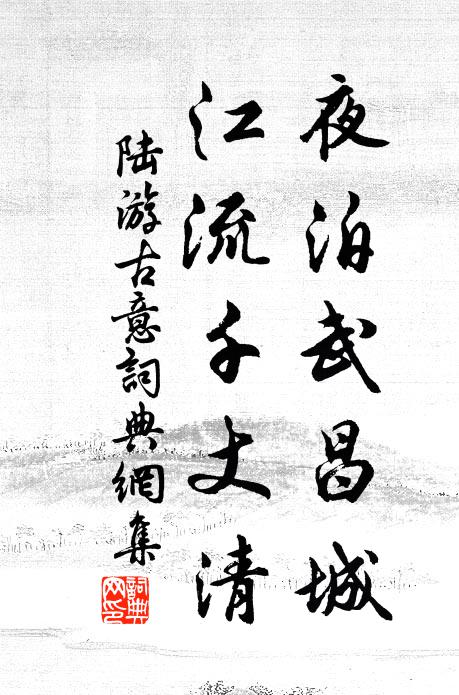 夜泊武昌城
江流千丈清
陆游古意詞典網集
詞典
网印